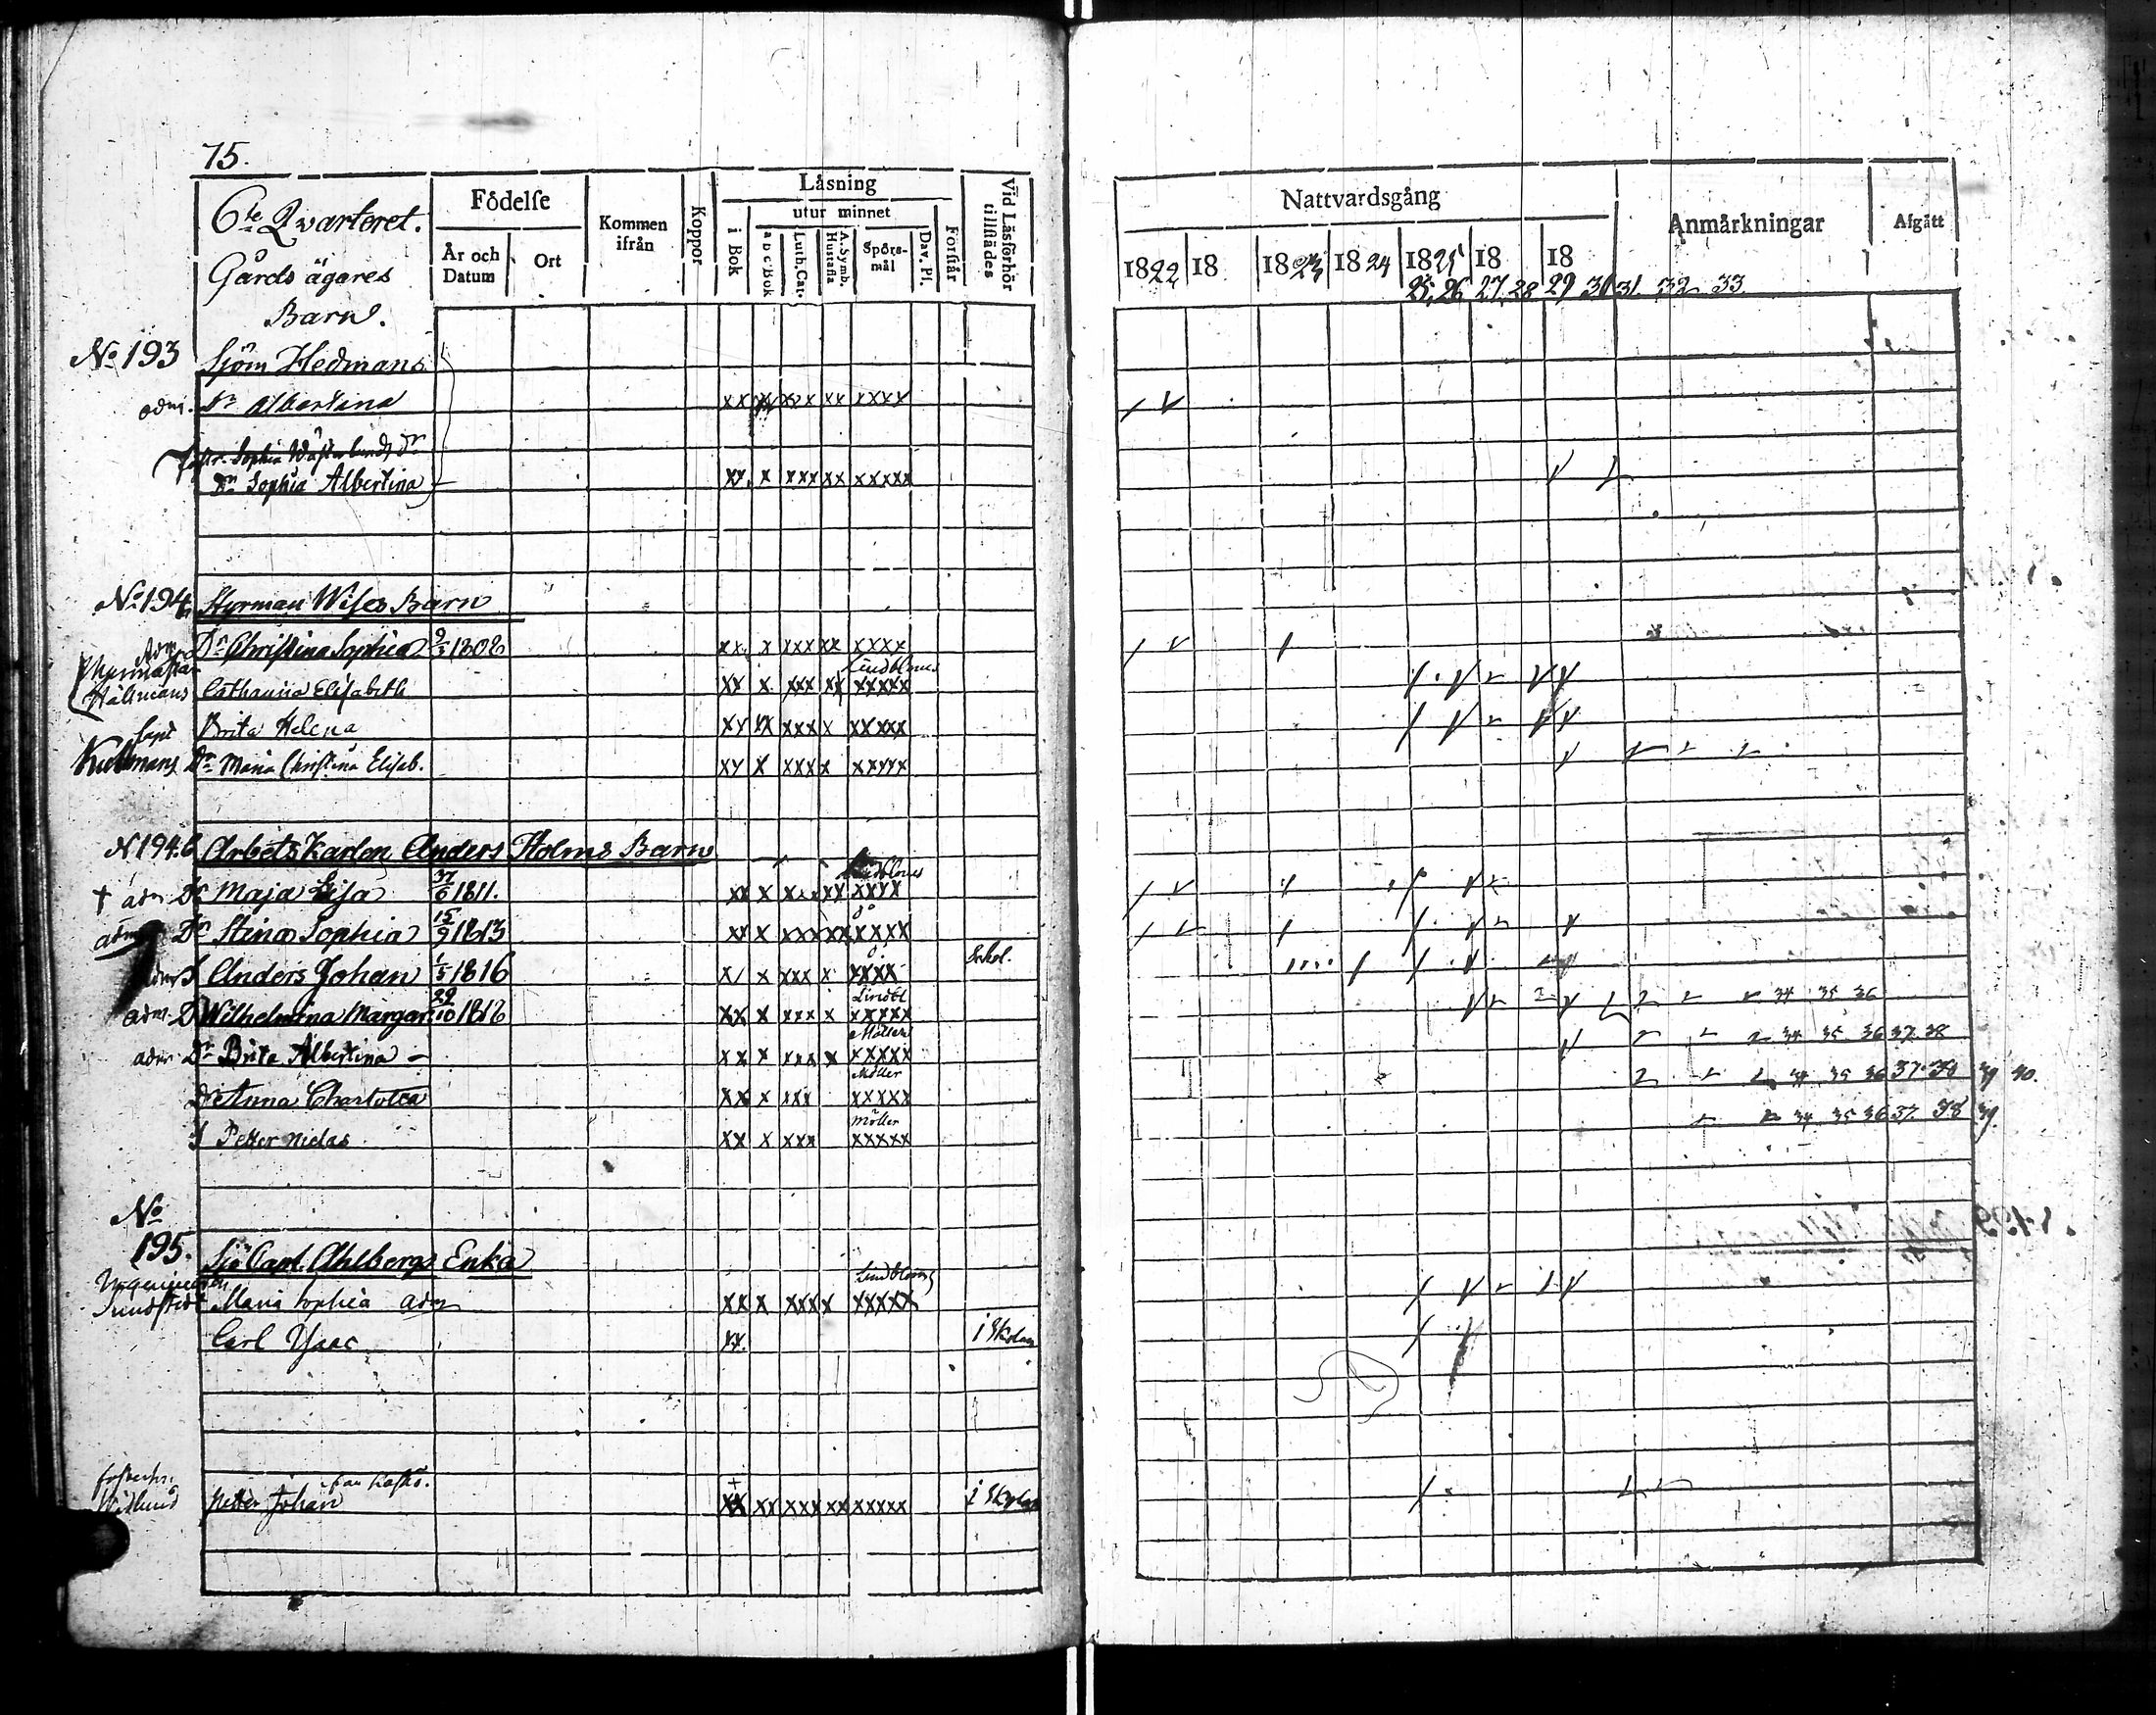 75.
6te Qvarteret.
Gårds ägares
Barn.
Födelse
År och Datum
Ort
Kommen ifrån
Koppor
Läsning
i Bok
utur minnet
a b c Bok
Luth. Cat.
A. Symb. Hustafla
Spörs-mål
Dav. Pl.
Förstår
Vid Läsförhör tillstädes
Nattvardsgång
1822 18 1823 1824 1825 18 18
25, 26 27, 28 29 30 31 32 33
Anmärkningar
Afgått
No 193 Sjöm Hedmans
adm. Dr Albertina xx xxx xx xxxx
Sophia Wästerlunds dr
Dr Sophia Albertina xx x xxx xx xxxxx
No 194 Styrman Wises Barn
Dr Christina Sophia 1808 xx x xxx xx xxxx
Lindbloms
Hällmans Catharina Elisabeth xx x xxx xx xxxxx
Brita Helena xx xx xxx x xxxxx
Kullmans Dr Maria Christina Elisab. xx x xxx x xxxxx
N 194.b Arbets Karlen Anders Holms Barn
Lindbloms
† adm Dr Maja Lisa 1811. xx x xxx xx xxxx
do
adm Dr Stina Sophia 15/9 1813 xx x xxx xx xxxxx
adm S Anders Johan 1/5 1816 x x xxx x xxxx Skol.
Lindbl
adm. D Wilhelmina Margar. 29/10 1818 xx x xxx x xxxxx 34 35 36
Möller
adm Dr Brita Albertina xx x xxx x xxxxx 34 35 36 37. 38
Möller
Dr Anna Charlotta xx x xxx xxxxx 34 35 36 37. 38 39 40.
Möller
S Petter Niclas xx x xxx xxxxx 34 35 36 37. 38 39.
No
195. Sjö Capt. Ahlbergs Enka
Lindbloms
Maria Sophia adm xx x xxx x xxxxx
Carl Ysac xx. i Skolan
från Kaskö.
Widlund Petter Johan xx xx xxx xx xxxxx i Skolan